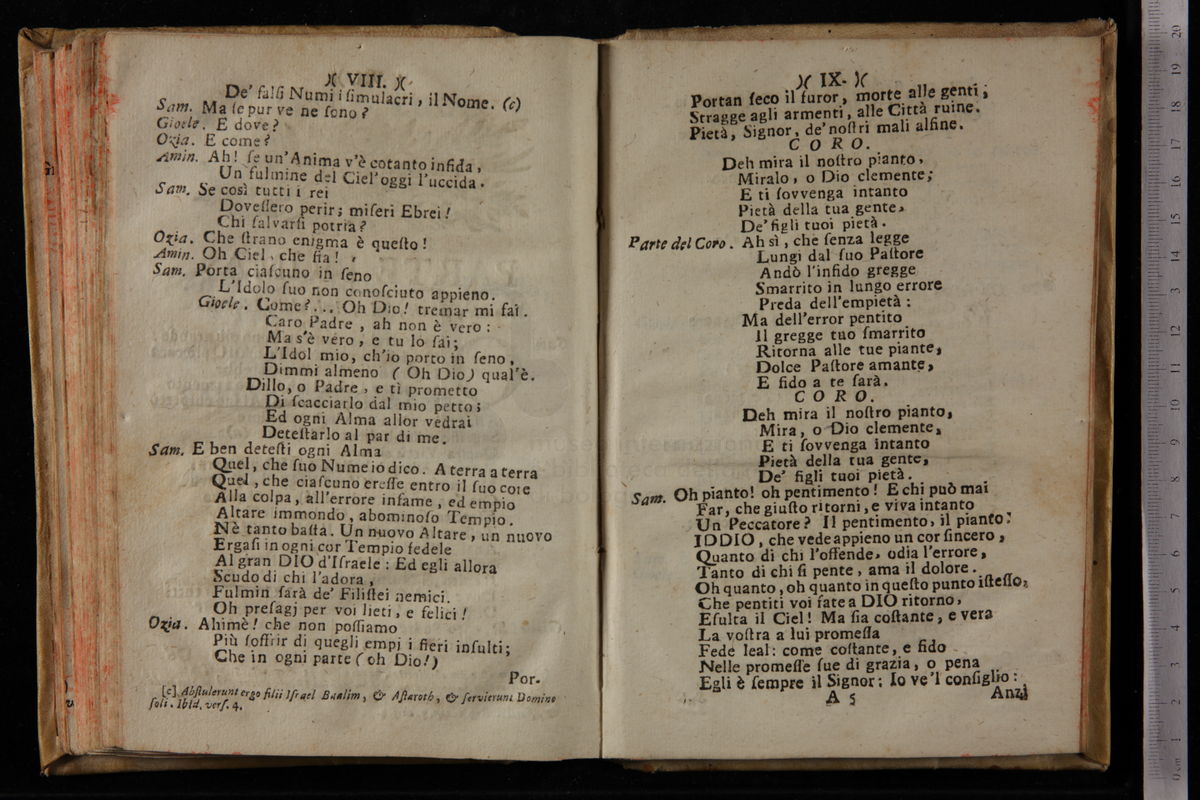 )( VIII. )(
De' falſi Numi i ſimulacri, il Nome. (c)
Sam. Ma ſe pur ve ne ſono?
Gioele. E dove?
Ozia. E come?
Amin. Ah! ſe un'Anima v'è cotanto infida,
Un fulmine del Ciel'oggi l'uccida.
Sam. Se così tutti i rei
Doveſſero perir; miſeri Ebrei!
Chi ſalvarſi potria?
Ozia. Che ſtrano enigma è queſto!
Amin. Oh Ciel, che fia!
Sam. Porta ciaſcuno in ſeno
L'Idolo ſuo non conoſciuto appieno.
Gioele. Come?... Oh Dio! tremar mi fai.
Caro Padre, ah non è vero:
Ma s'è vero, e tu lo ſai;
L'Idol mio, ch'io porto in ſeno,
Dimmi almeno (Oh Dio) qual'è.
Dillo, o Padre, e ti prometto
Di ſcacciarlo dal mio petto;
Ed ogni Alma allor vedrai
Deteſtarlo al par di me.
Sam. E ben deteſti ogni Alma
Quel, che ſuo Nume io dico. A terra a terra
Quel, che ciaſcuno ereſſe entro il ſuo core
Alla colpa, all'errore infame, ed empio
Altare immondo, abominoſo Tempio.
Nè tanto baſta. Un nuovo Altare, un nuovo
Ergaſi in ogni cor Tempio fedele
Al gran DIO d'Iſraele: Ed egli allora
Scudo di chi l'adora,
Fulmin ſarà de' Filiſtei nemici.
Oh preſagj per voi lieti, e felici!
Ozia. Ahimè! che non poſſiamo
Più ſoffrir di quegli empj i fieri inſulti;
Che in ogni parte (oh Dio!)
Por-
[c] Abſtulerunt ergo filii Iſrael Baalim, & Aſtaroth, & ſervierunt Domino
ſoli. Ibid. verſ. 4.
)( IX. )(
Portan ſeco il furor, morte alle genti;
Stragge agli armenti, alle Città ruine.
Pietà, Signor, de' noſtri mali alfine.
CORO.
Deh mira il noſtro pianto,
Miralo, o Dio clemente;
E ti ſovvenga intanto
Pietà della tua gente,
De' figli tuoi pietà.
Parte del Coro. Ah sì, che ſenza legge
Lungi dal ſuo Paſtore
Andò l'infido gregge
Smarrito in lungo errore
Preda dell'empietà:
Ma dell'error pentito
Il gregge tuo ſmarrito
Ritorna alle tue piante,
Dolce Paſtore amante,
E fido a te ſarà.
CORO.
Deh mira il noſtro pianto,
Mira, o Dio clemente,
E ti ſovvenga intanto
Pietà della tua gente,
De' figli tuoi pietà.
Sam. Oh pianto! oh pentimento! E chi può mai
Far, che giuſto ritorni, e viva intanto
Un Peccatore? Il pentimento, il pianto.
IDDIO, che vede appieno un cor ſincero,
Quanto di chi l'offende, odia l'errore,
Tanto di chi ſi pente, ama il dolore.
Oh quanto, oh quanto in queſto punto iſteſſo,
Che pentiti voi fate a DIO ritorno,
Eſulta il Ciel! Ma ſia coſtante, e vera
La voſtra a lui promeſſa
Fede leal: come coſtante, e fido
Nelle promeſſe ſue di grazia, o pena
Egli è ſempre il Signor: Io ve'l conſiglio:
A 5
Anzi